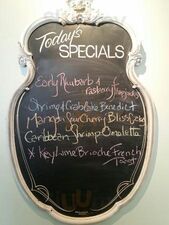 Today's
SPECIALS
Early Rhubarb &
raspberry
Shrimp & Crabcake Benedict
Mango & Sour Cherry Bliss
Caribbean Shrimp Omelette
* Key Lime Brioche French
Toast